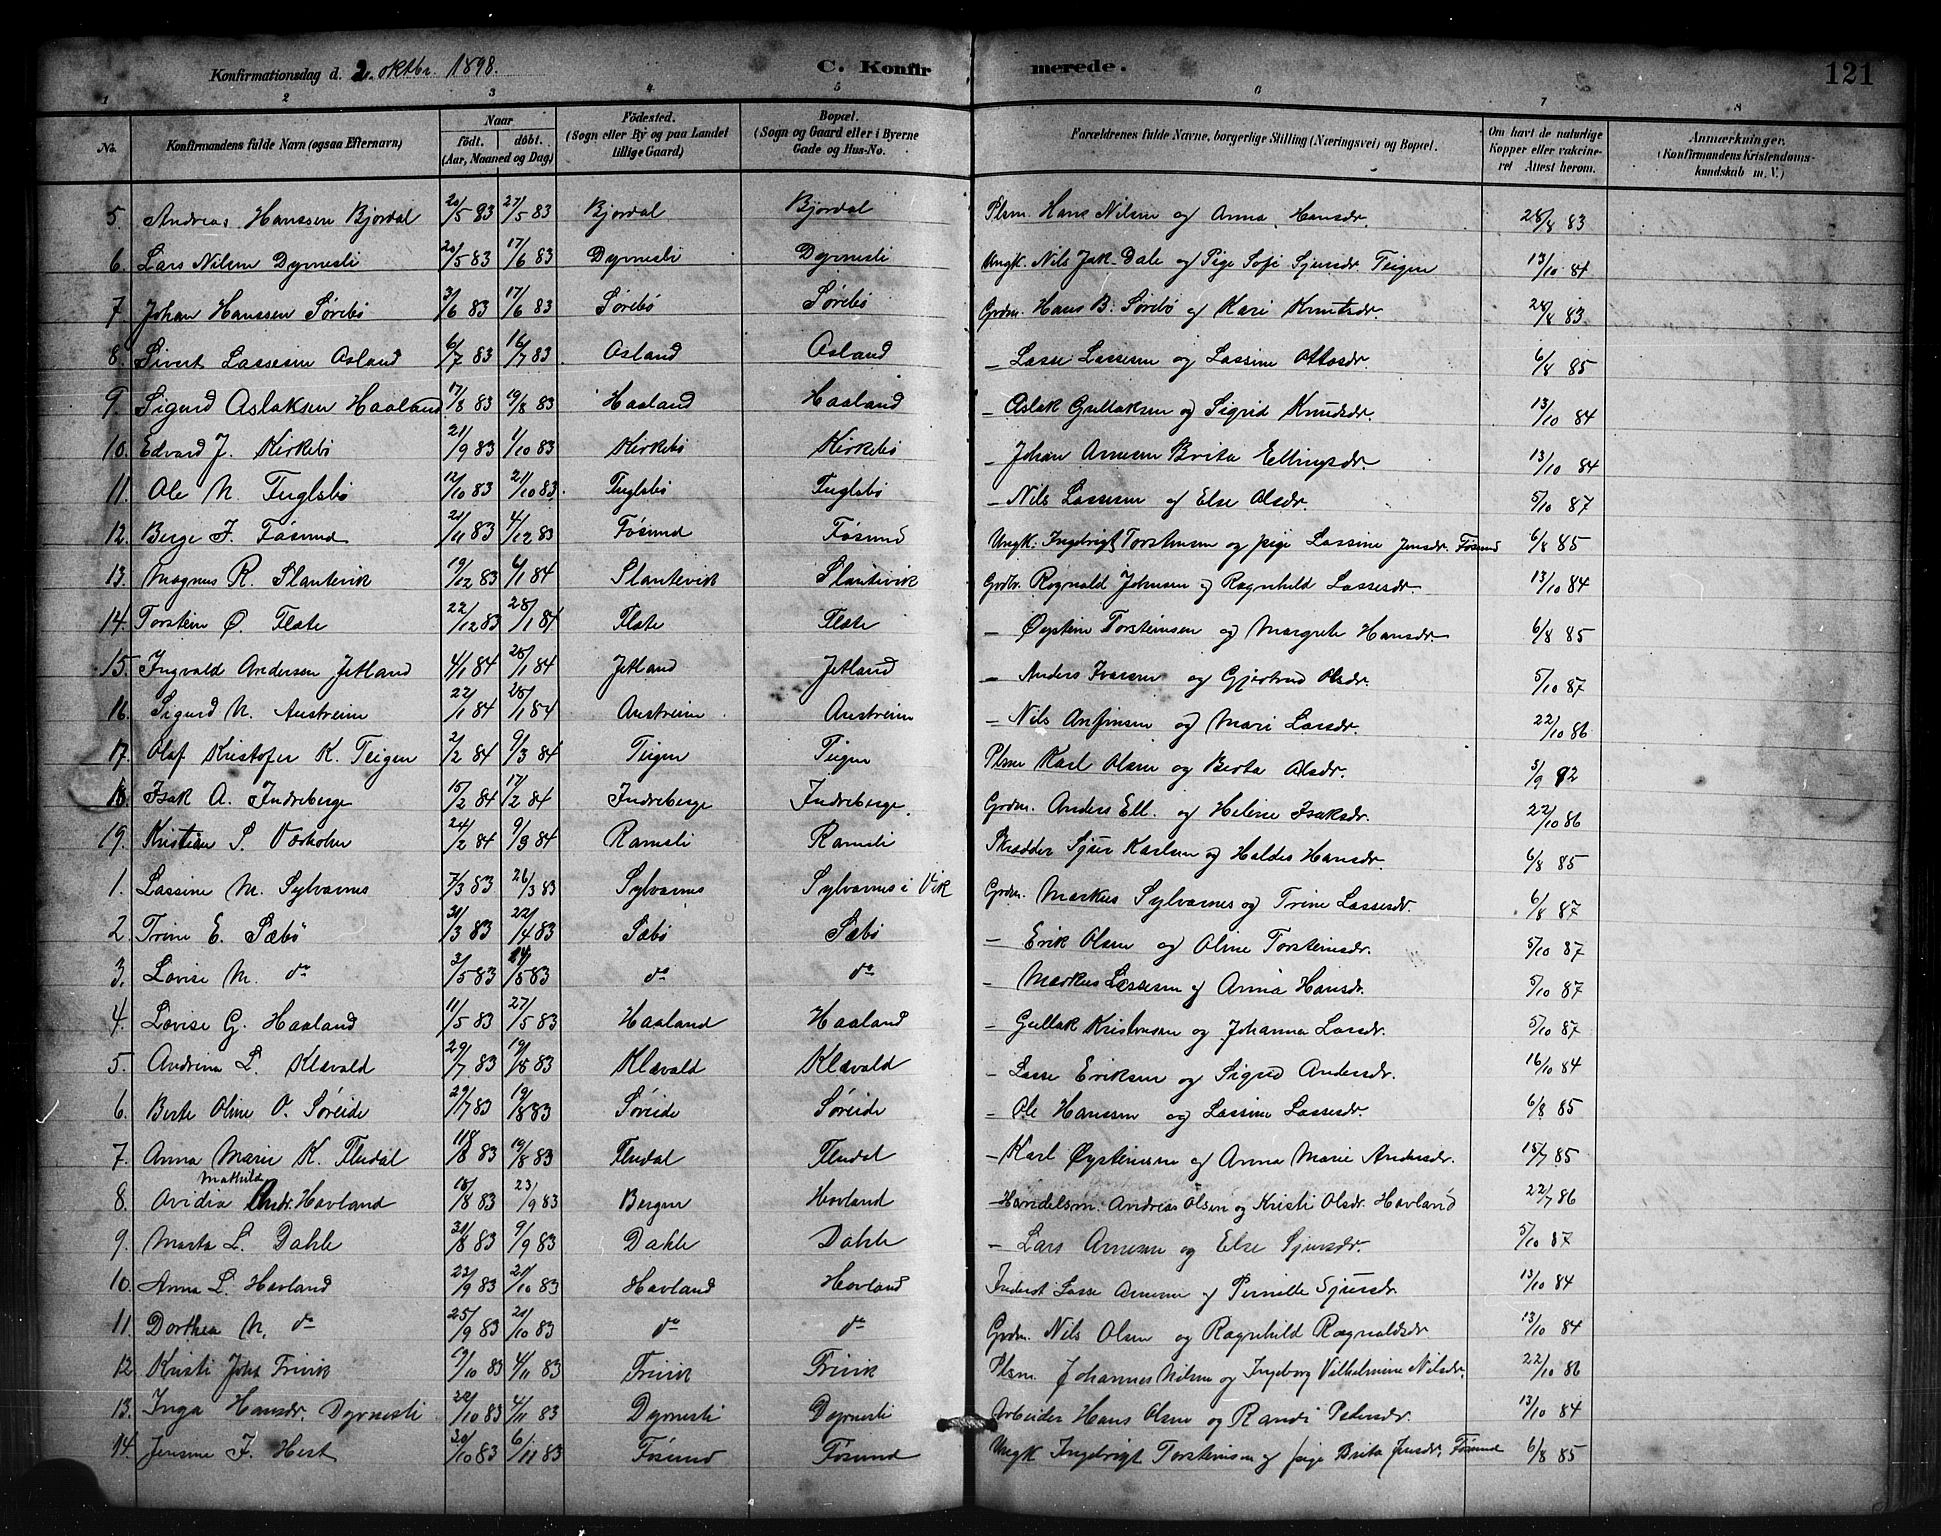 Konfirmationsdag d. 2. oktbr. 1898. C. Konfirmerede. 121
1 2 3 4 5 6 7 8
No. Konfirmandens fulde Navn (ogsaa Efternavn) Naar født. døbt. (Aar, Maaned og Dag) Fødested. (Sogn eller By og paa Landet tillige Gaard) Bopæl. (Sogn og Gaard eller i Byerne Gade og Hus-No. Forældrenes fulde Navne, borgerlige Stilling (Næringsvei) og Bopæl. Om havt de naturlige Kopper eller vakcineret Attest herom. Anmærkninger. (Konfirmandens Kristendomskundskab m. V.)
5. Andreas Hanssen Bjordal 20/5 83 27/5 83 Bjordal Bjordal Plsm. Hans Nilsen og Anna Hansdr. 28/8 83
6. Lars Nilsen Dyrnesli 20/5 83 17/6 83 Dyrnesli Dyrnesli Ungk. Nils Jak. Dale og Pige Sofi Sjursdr Teigen 13/10 84
7. Johan Hanssen Sørebø 3/6 83 17/6 83 Sørebø Sørebø Grdm. Hans B. Sørebø og Kari Knutsdr. 28/8 83
8. Sivert Lassesen Asland 6/7 83 16/7 83 Asland Asland — Lasse Lassesen og Lassine Ottosdr. 6/8 85
9. Sigurd Aslaksen Haaland 17/8 83 19/8 83 Haaland Haaland — Aslak Gullaksen og Sigrid Knudsdr. 13/10 84
10. Edvard J. Kirkebø 21/9 83 1/10 83 Kirkebø Kirkebø — Johan Arnesen Brita Ellingsdr. 13/10 84
11. Ole N. Fuglsbø 12/10 83 21/10 83. Fuglsbø Fuglsbø — Nils Lassesen og Else Olsdr. 5/10 87
12. Berge I. Føsund 20/11 83 4/12 83 Føsund Føsund Ungk. Ingebrigt Torsteinsen og pige Lassine Jensdr. Føsund 6/8 85
13. Magnus R. Slantevik 19/12 83 6/1 84 Slantevik Slantevik Grdbr. Ragnvald Johnsen og Ragnhild Lassesdr. 13/10 84
14. Torstein Ø. Flate 22/12 83 28/1 84 Flate Flate — Øystein Torsteinsen og Margrete Hansdr. 6/8 85
15. Ingvald Andersen Jetland 4/1 84 28/1 84 Jetland Jetland — Anders Ivarsen og Gjertrud Olsdr. 5/10 87
16. Sigurd N. Austreim 22/1 84 28/1 84 Austreim Austreim — Nils Anfinsen og Mari Larsdr. 22/10 86
17. Olaf Kristofer K. Teigen 2/2 84 9/3 84 Teigen Teigen Plsm Karl Olsen og Berta Olsdr. 5/9 92
18. Isak A. Indreberge 15/2 84 17/2 84 Indreberge Indreberge Grdm. Anders Ell. og Heline Isaksdr. 22/10 86
19. Kristian S. Varholm 24/2 84 9/3 84 Ramsli Ramsli Skrædder Sjur Karlsen og Haldis Hansdr. 6/8 85
1. Lassine M. Sylvarnes 7/3 83 26/3 83 Sylvarnes Sylvarnes i Vik Grdm. Markus Sylvarnes og Trine Lassesdr. 6/8 87
2. Trine E. Sæbø 31/3 83 22/4 83 Sæbø Sæbø — Erik Olsen og Oline Torsteinsdr. 5/10 87
3. Lovise M. do 3/5 83 14/5 83 do do — Markus Lassesen og Anna Hansdr. 5/10 87
4. Lovise G. Haaland 11/5 83 27/5 83 Haaland Haaland — Gullak Kristensen og Johanna Larsdr. 5/10 87
5. Andrina L. Klævald 29/7 83 19/8 83 Klævald Klævald — Lasse Eriksen og Sigrid Andersdr. 16/10 84
6. Berte Oline O. Søreide 29/7 83 19/8 83 Søreide Søreide — Ole Hanssen og Lassine Lassesdr. 6/8 85
7. Anna Marie K. Fludal 11/8 83 19/8 83 Fludal Fludal — Karl Øysteinsen og Anna Marie Andersdr. 15/7 85
8. Avidia Mathild Andr. Hovland 18/8 83 23/9 83 Bergen Hovland — Handelsm. Andreas Olsen og Kristi Olsdr. Hovland 22/7 86
9. Marta L. Dahle 31/8 83 9/9 83 Dahle Dahle — Lars Arnesen og Else Sjursdr. 5/10 87
10. Anna L. Hovland 23/9 83 21/10 83 Hovland Hovland Inderst Lasse Arnesen og Pernille Sjursdr. 13/10 84
11. Dorthea N. do 25/9 83 21/10 83 do do Grdm. Nils Olsen og Ragnhild Ragnvaldsdr. 13/10 84
12. Kristi Johs Trivik 19/10 83 4/11 83 Trivik Trivik Plsm. Johannes Nilsen og Ingeborg Vilhelmine Nilsdr. 22/10 86
13. Inga Hansdr. Dyrnesli 20/10 83 4/11 83 Dyrnesli Dyrnesli Arbeider Hans Olsen og Randi Pedersdr. 13/10 84
14. Jensine I. Hest 20/10 83 6/11 83 Føsund Føsund Ungk Ingebrigt Torsteinsen og pige Brita Jensdr. Føsund 6/8 85